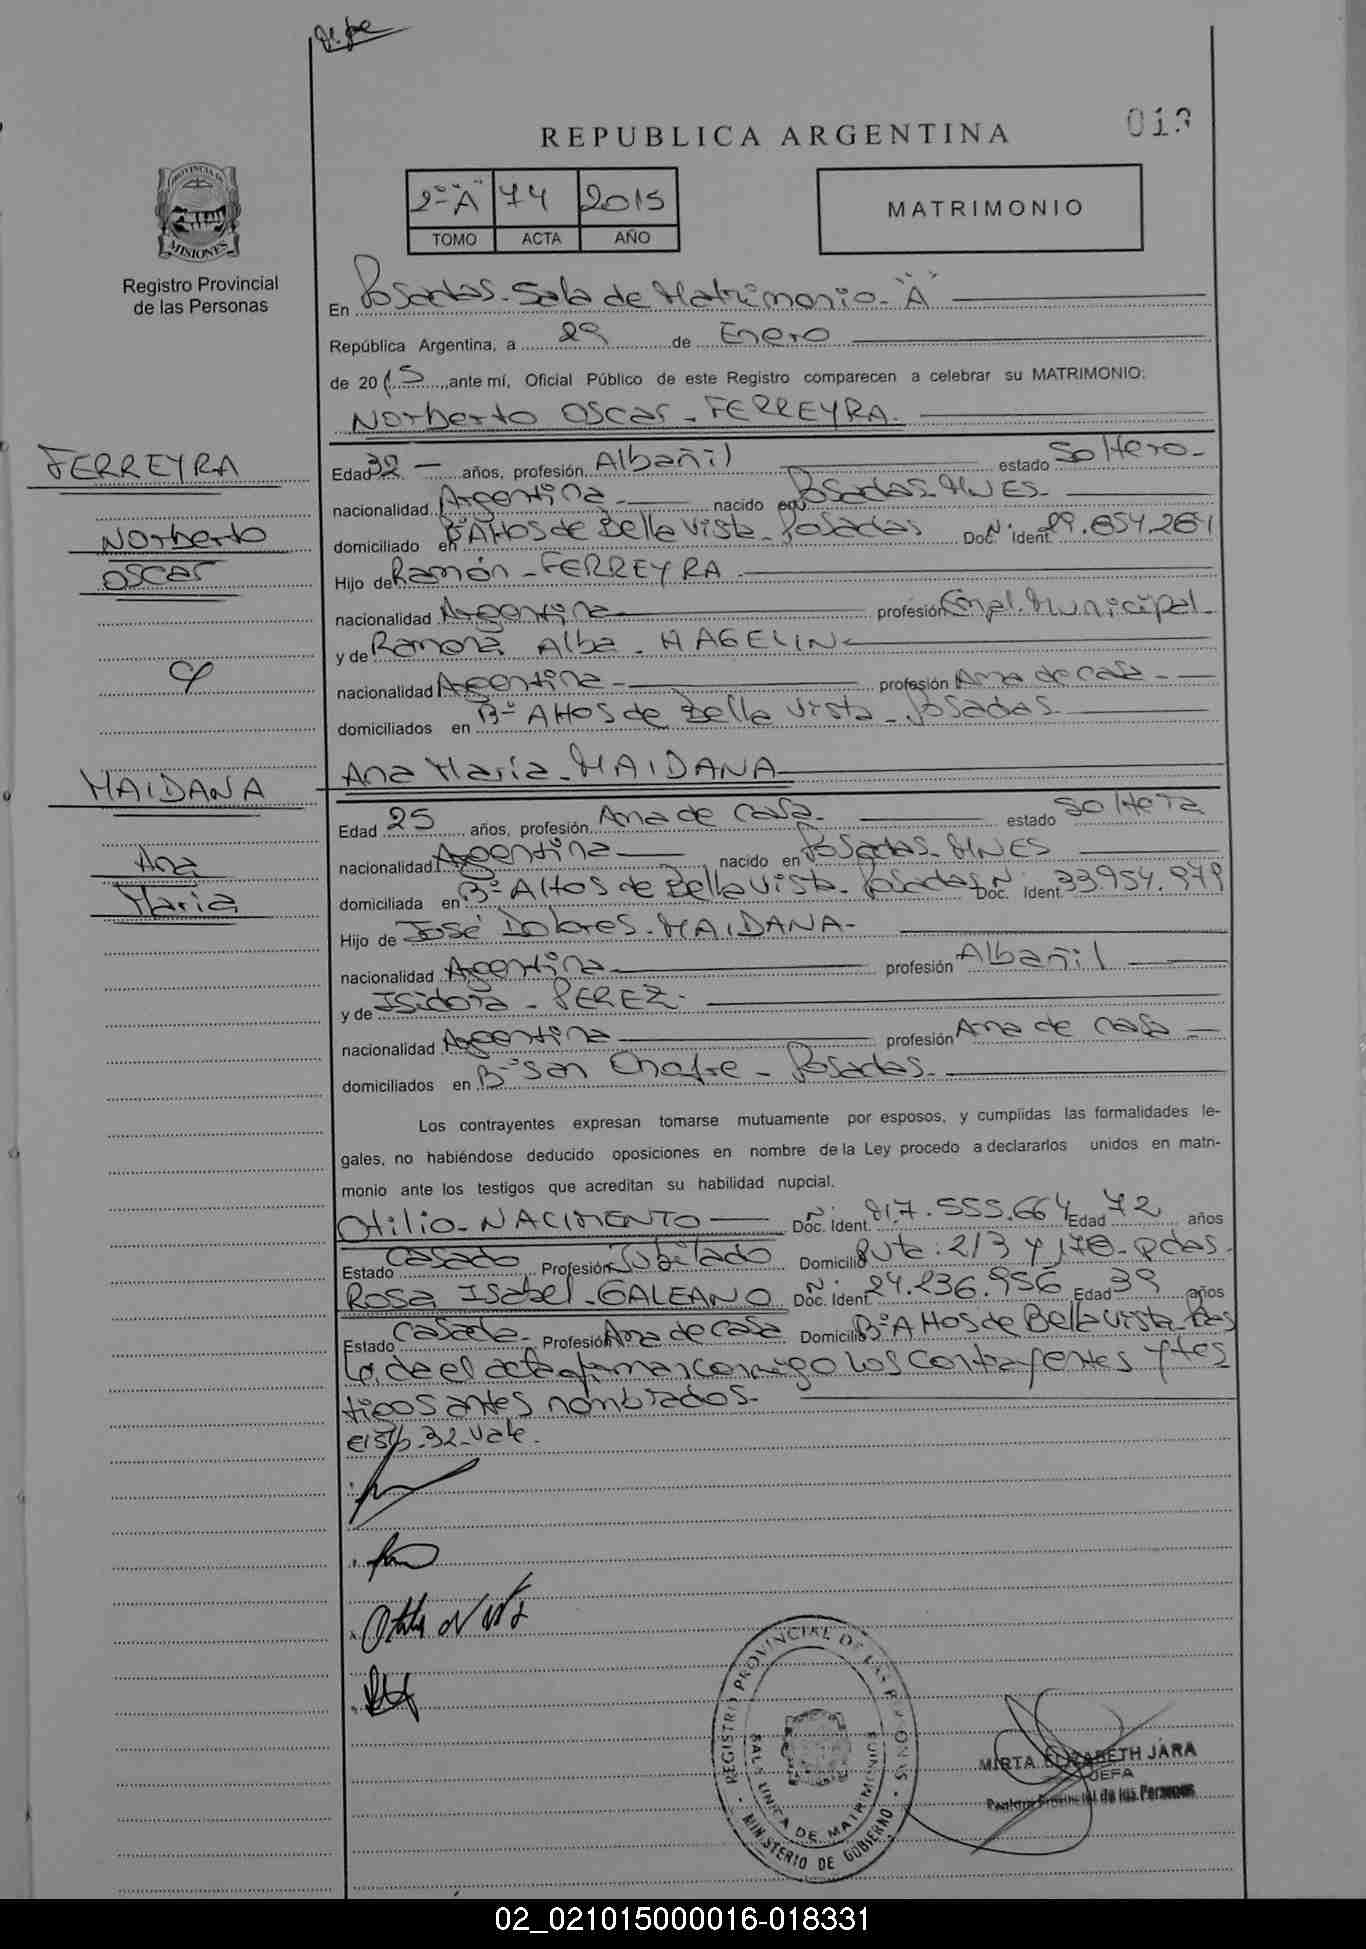 REPUBLICA ARGENTINA
2º "A" 74 2015
TOMO ACTA AÑO
MATRIMONIO
PROVINCIA DE MISIONES
Registro Provincial
de las Personas
En Posadas - Sala de Matrimonio - "A"
República Argentina, a 29 de Enero
de 2015, ante mí, Oficial Público de este Registro comparecen a celebrar su MATRIMONIO:
Norberto Oscar - FERREYRA.
FERREYRA
Norberto
Oscar
Edad 32 - años, profesión Albañil estado Soltero -
nacionalidad Argentina - nacido en Posadas - MNES -
domiciliado en Bº Altos de Bella Vista - Posadas Doc. Nº Ident. 29.854.281
Hijo de Ramón - FERREYRA
nacionalidad Argentina profesión Empl. Municipal -
y de Ramona Alba - HAGELIN
nacionalidad Argentina - profesión Ama de casa -
domiciliados en Bº Altos de Bella Vista - Posadas
Ana María - MAIDANA
MAIDANA
Ana
María
Edad 25 años, profesión Ama de casa - estado Soltera
nacionalidad Argentina nacido en Posadas - MNES
domiciliada en Bº Altos de Bella Vista - Posadas Doc. Nº Ident. 33.954.979
Hijo de José Dolores - MAIDANA -
nacionalidad Argentina profesión Albañil
y de Isidora - PEREZ -
nacionalidad Argentina profesión Ama de casa -
domiciliados en Bº San Onofre - Posadas -
Los contrayentes expresan tomarse mutuamente por esposos, y cumplidas las formalidades le-
gales, no habiéndose deducido oposiciones en nombre de la Ley procedo a declararlos unidos en matri-
monio ante los testigos que acreditan su habilidad nupcial.
Otilio - NACIMENTO Doc. Ident. Nº M7.555.664 Edad 72 años
Estado Casado Profesión Jubilado Domicilio Ruta: 213 y 178 - Pdas -
Rosa Isabel - GALEANO Doc. Ident. Nº 24.236.956 Edad 39 años
Estado Casada - Profesión Ama de casa Domicilio Bº Altos de Bella Vista - Pdas
Leída el acta firman conmigo los contrayentes y tes
tigos antes nombrados -
32 - Vale -
REGISTRO PROVINCIAL DE LAS PERSONAS
SALA UNICA DE MATRIMONIOS
MINISTERIO DE GOBIERNO
MIRTA ELIZABETH JARA
JEFA
Registro Provincial de las Personas
02_021015000016-018331